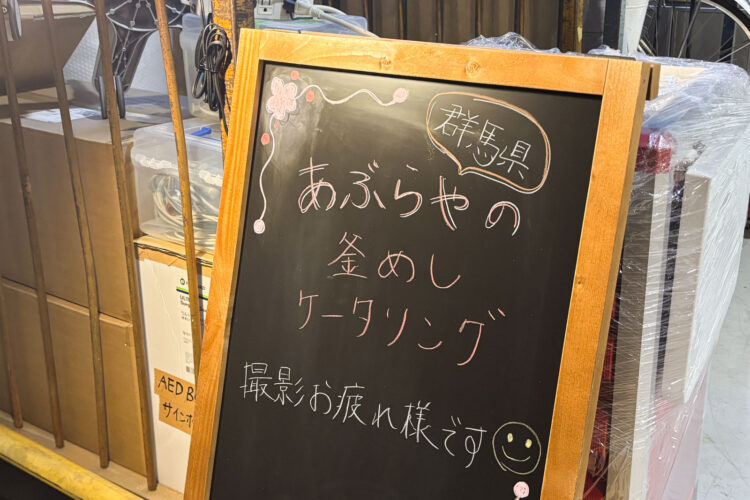 群馬県
あぶらやの
釜めし
ケータリング
撮影お疲れ様です
AED B
サインボ